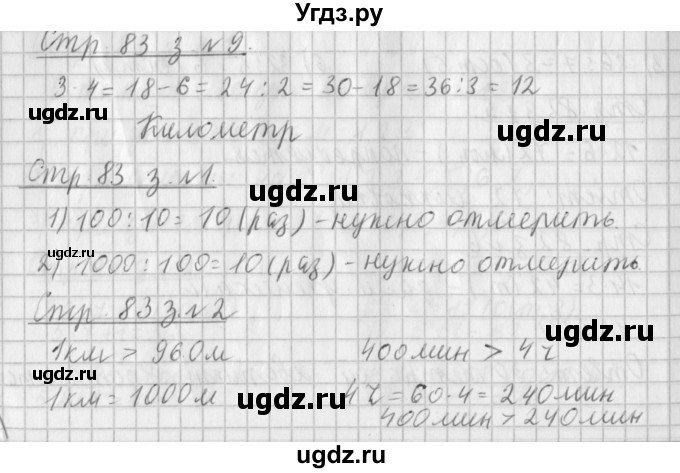 Угдз.ру
Стр. 83 з. №9.
3 · 4 = 18 - 6 = 24 : 2 = 30 - 18 = 36 : 3 = 12
Километр
Стр. 83 з. №1.
1) 100 : 10 = 10 (раз) - нужно отмерить.
2) 1000 : 100 = 10 (раз) - нужно отмерить.
Стр. 83 з. №2
1км > 960м 400мин > 4ч
1км = 1000м 4ч = 60 · 4 = 240мин
400мин > 240мин
ugdz.ru
ugdz.ru
ugdz.ru
ugdz.ru
ugdz.ru
ugdz.ru
ugdz.ru
ugdz.ru
ugdz.ru